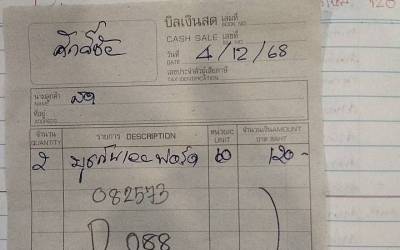 บิลเงินสด เล่มที่ BOOK NO.
CASH SALE เลขที่ NO.
ศักดิ์ชัย
วันที่ DATE 4/12/68
เลขประจำตัวผู้เสียภาษี
TAX IDENTIFICATION
นามลูกค้า NAME สด
ที่อยู่ ADDRESS
จำนวน QUANTITY รายการ DESCRIPTION หน่วยละ UNIT จำนวนเงิน AMOUNT บาท BAHT
2 60 120 -
082573
D 088
120